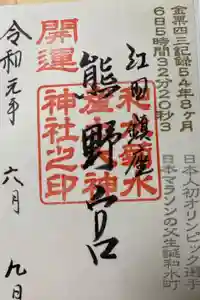 金栗四三記録54年8ヶ月
6日5時間32分20秒3
日本人初オリンピック選手
日本マラソンの父生誕和水町
江田鎮座
熊野宮
開運
神社之印
令和元年 六月 九日